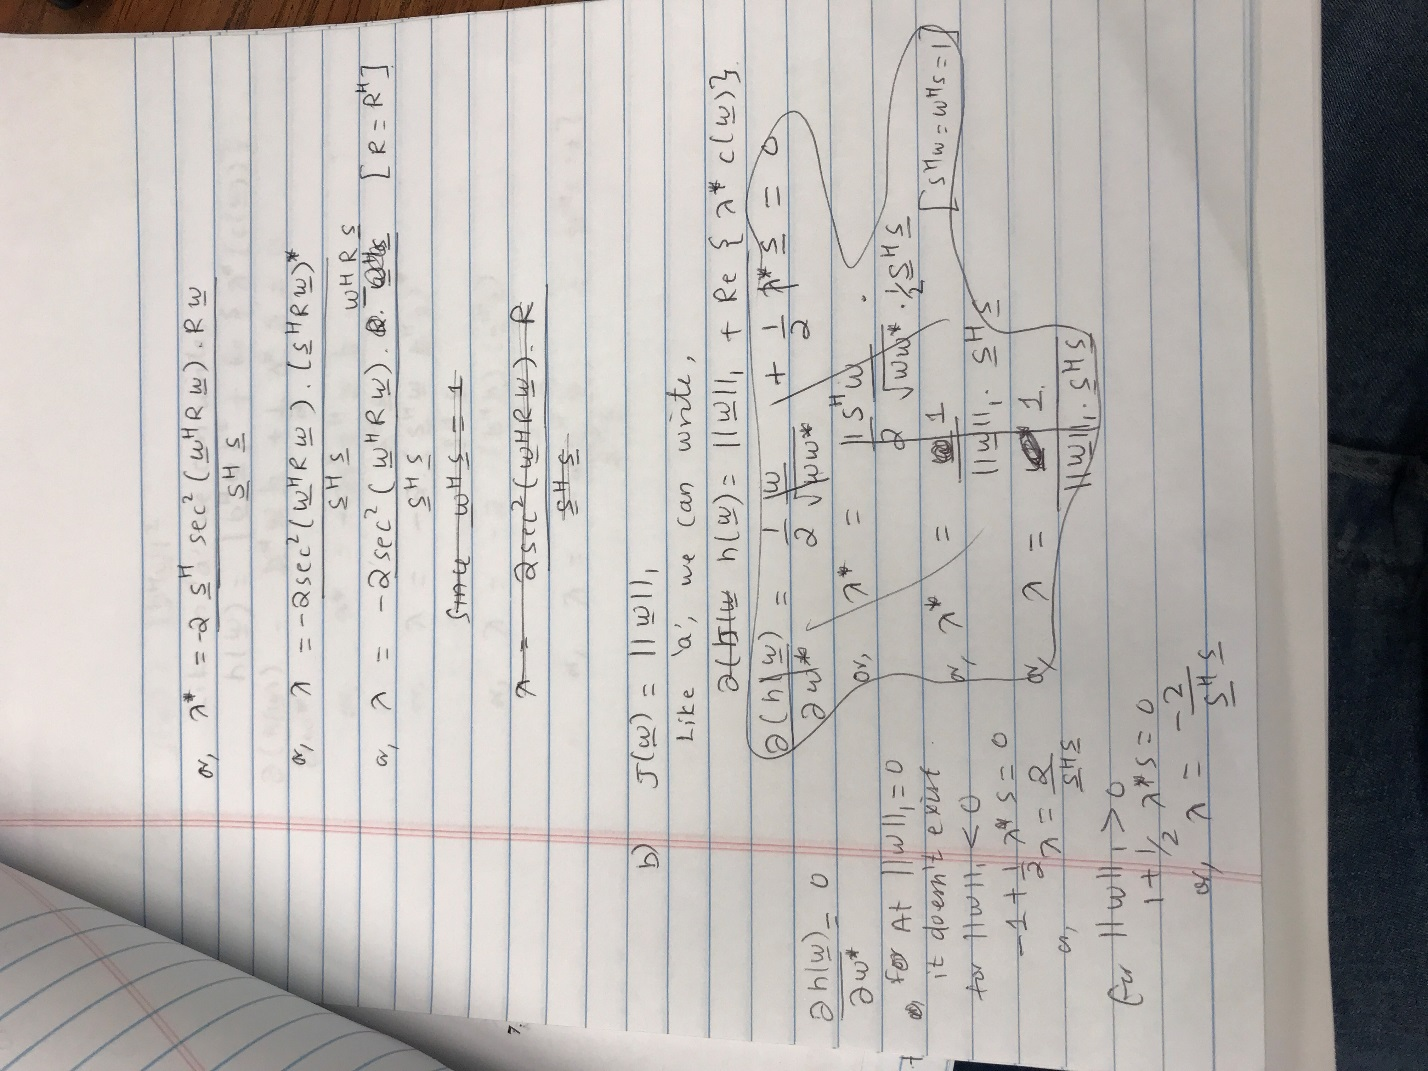 or, λ* = -2 S^H sec² (w^H R w) . R w
S^H S
or, λ = -2sec² (w^H R w) . (S^H R w)*
S^H S
or, λ = -2sec² (w^H R w) . w^H R S [R = R^H]
S^H S
since w^H S = 1
λ = 2sec² (w^H R w) . R
S^H S
b) J(w) = ||w||₁
Like 'a', we can write,
h(w) = ||w||₁ + Re { λ* c(w)}
∂(h(w)) / ∂w* = 1/2 w/√ww* + 1/2 λ* S = 0
or, λ* = || S^H w / 2 √ww* . 1/2 S^H S
or, λ* = 1 / ||w||₁ . S^H S [S^H w = w^H S = 1]
or, λ = 1 / ||w||₁ . S^H S
∂h(w) / ∂w* = 0
for At ||w||₁ = 0
it doesn't exist
for ||w||₁ < 0
-1 + 1/2 λ* S = 0
or, λ = 2 / S^H S
for ||w||₁ > 0
1 + 1/2 λ* S = 0
or, λ = -2 / S^H S